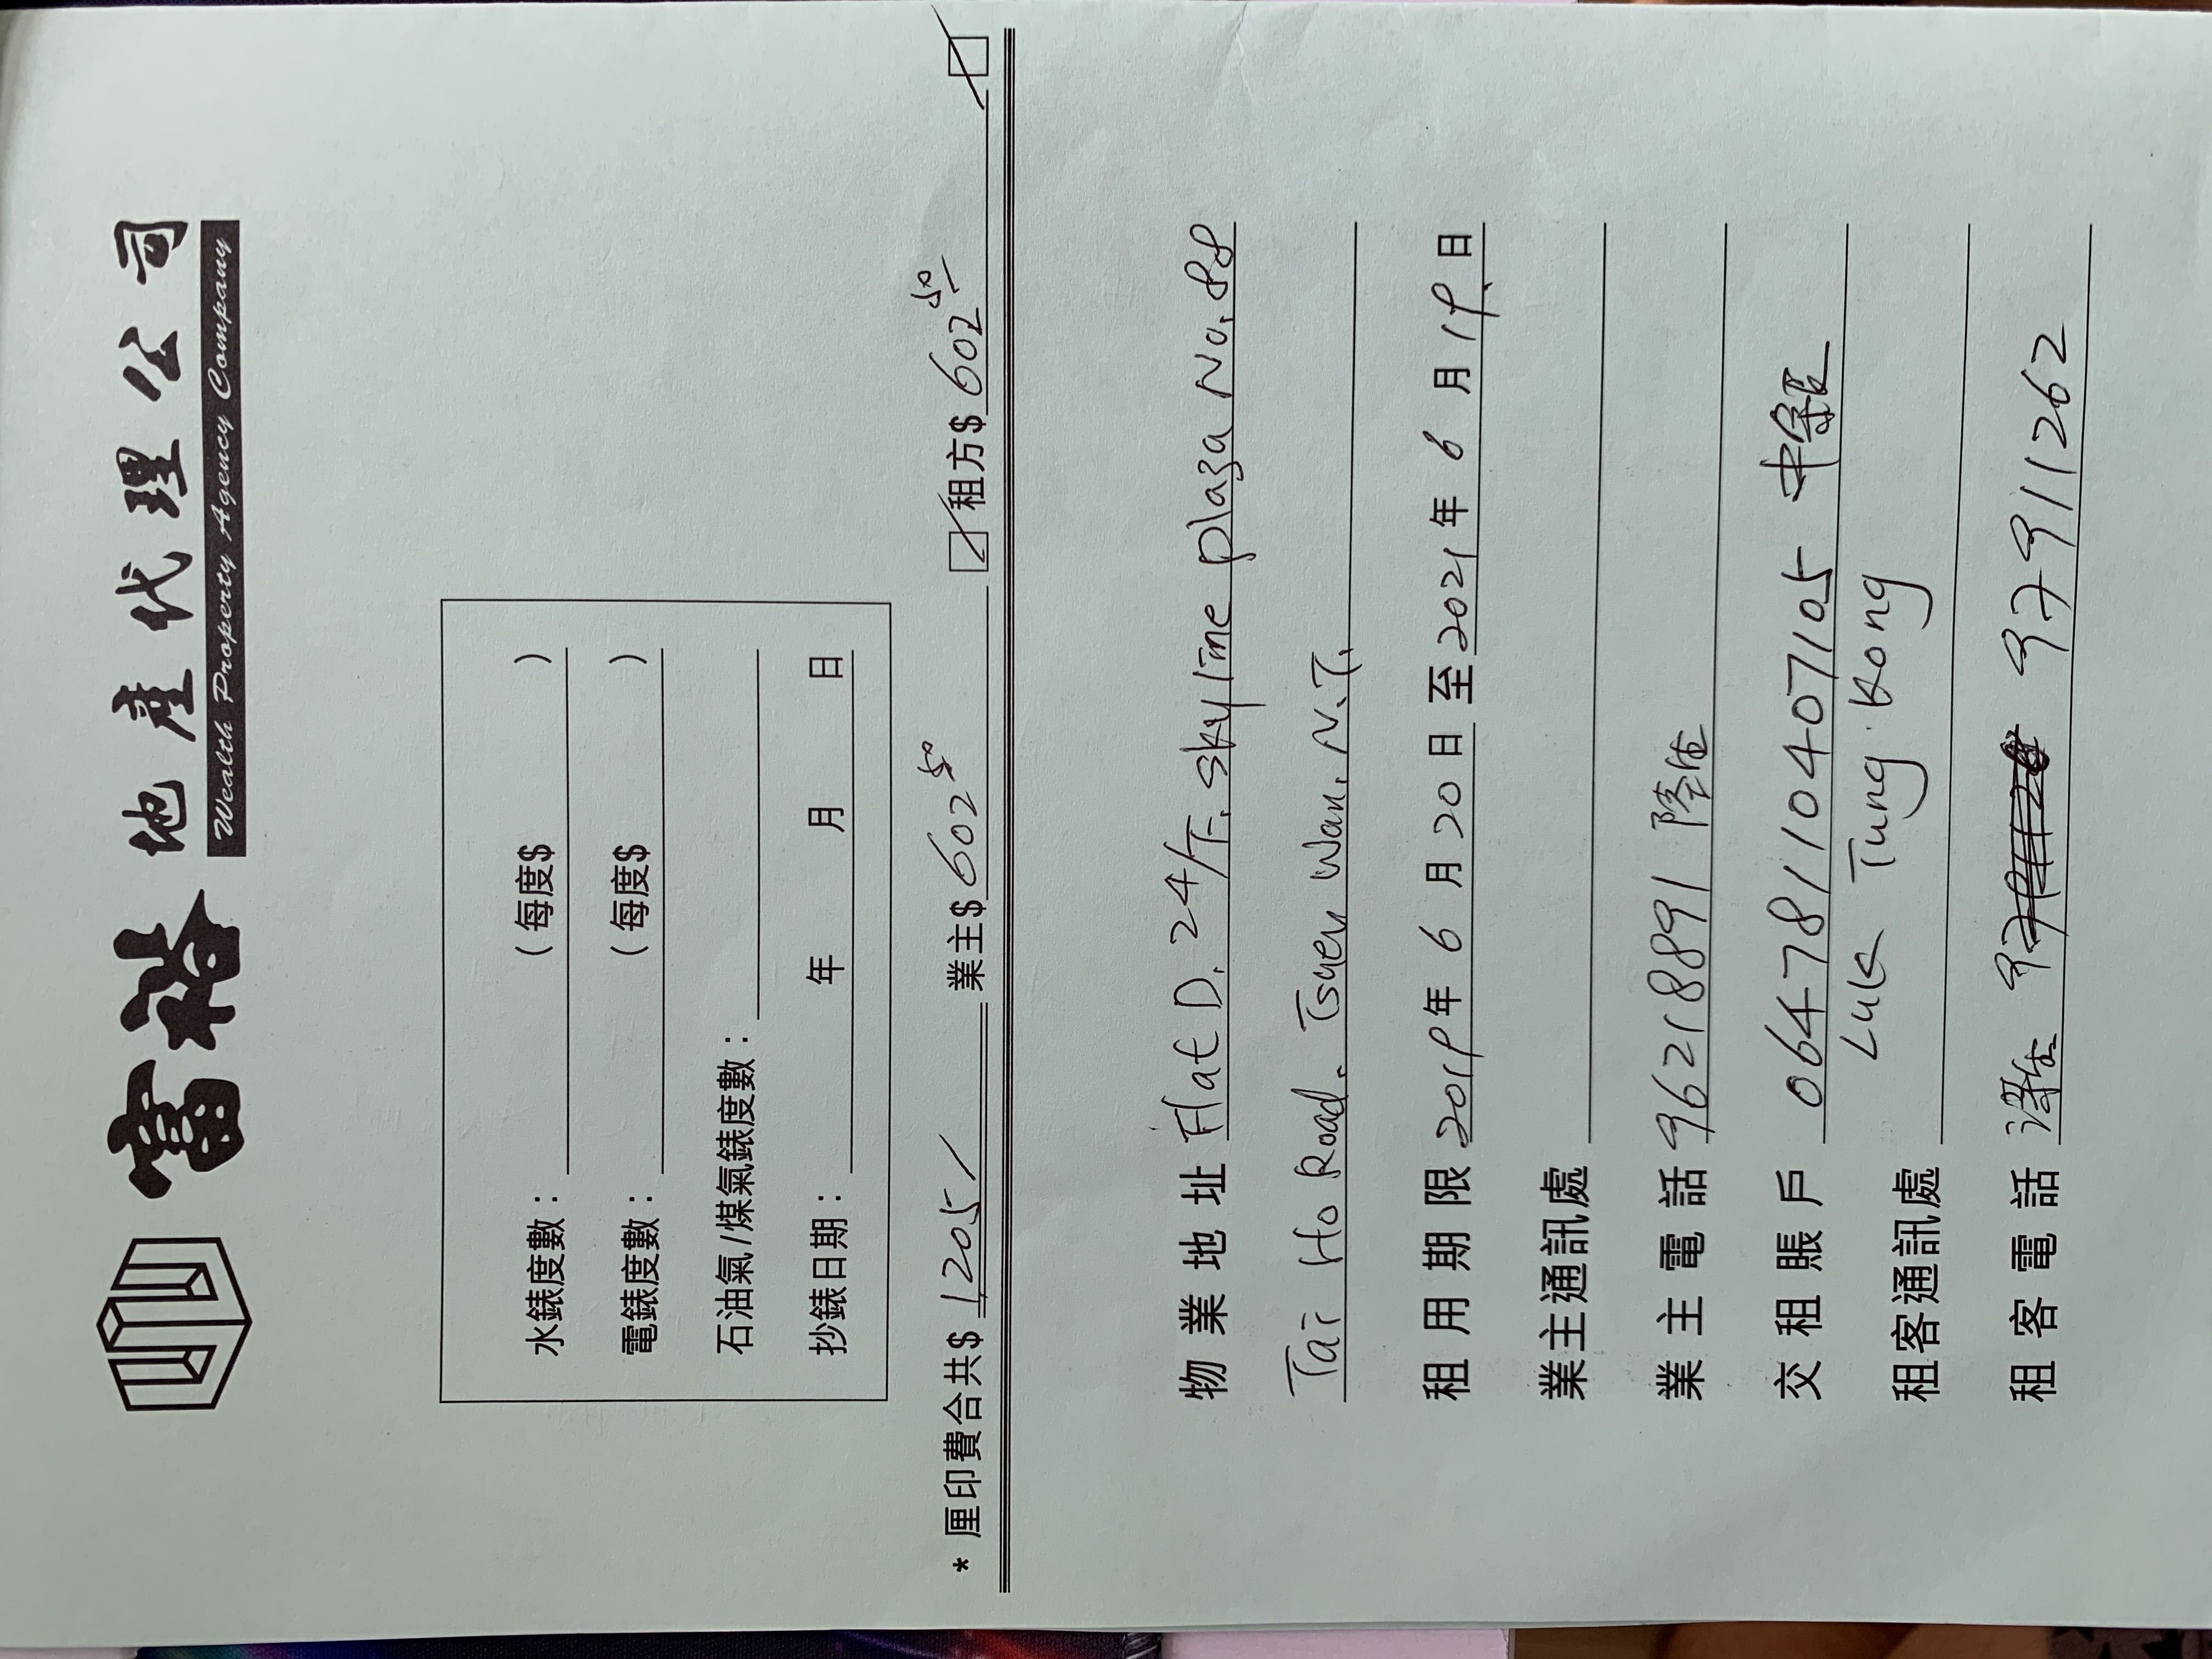 富裕地產代理公司
Wealth Property Agency Company
水錶度數： (每度$ )
電錶度數： (每度$ )
石油氣/煤氣錶度數：
抄錶日期： 年 月 日
* 厘印費合共$ 1205/ 業主$ 602 50 租方$ 602 50
物業地址 Flat D. 24/F. Skyline plaza No. 88
Tai Ho Road. Tsuen Wan. N.T.
租用期限 2019年 6 月 20 日 至 2021 年 6 月 19 日
業主通訊處
業主電話 96218891 陸生
交租賬戶 064-78110407105 中銀
Luk Tung Kong
租客通訊處
租客電話 97911262